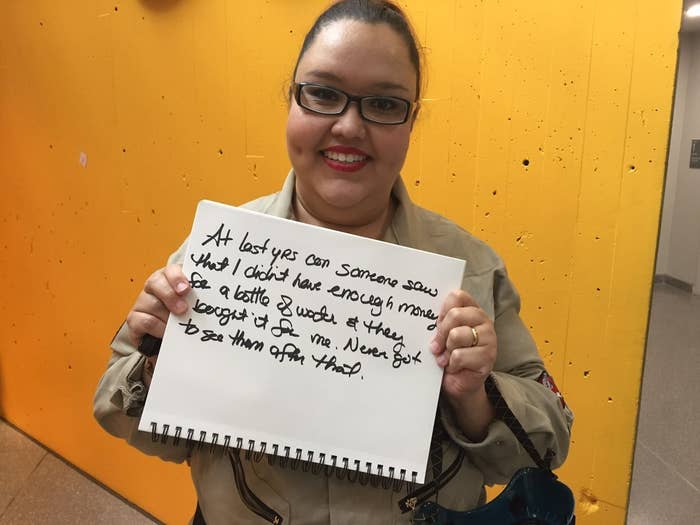 At last yrs con someone saw
that I didn't have enough money
for a bottle of water & they
bought it for me. Never got
to see them after that.